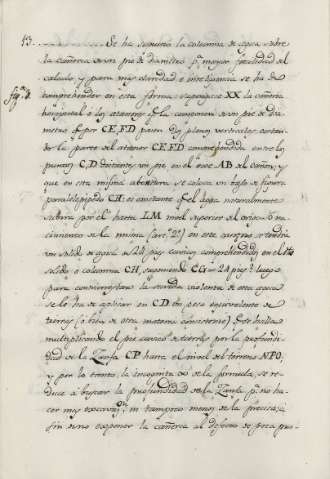 13..... Se ha supuesto la columna de agua sobre
la cañeria de un pie de diametro pª. mayor facilidad del
calculo, y para mas claridad e inteligencia se ha de
comprehender en esta forma: supongase XX la cañeria
figª. 3ª.
horizontal o los atanores qe. la componen de un pie de dia-
metro qe. por CE, FD pasen dos planos verticales cortan-
do la parte del atanor CE, FD comprehendida entre los
puntos C, D distantes un pie, en el exe AB del cañon; y
que en esta misma abertura se coloca un baso de figura
paralelepipeda CH: es constante qe. el agua naturalmente
subira por el hasta LM nivel superior del origen o na-
cimiento de la misma (artº. 2º) en este caso se tendra
un solido de agua de 24 pies cubicos comprehendido en el dho
solido o columna CH, suponiendo CG = 24 pies: luego
para contrarrestar la subida violenta de esta agua
se le ha de aplicar en CD un peso equivalente de
tierras (o bien de otra materia consistente) qe. se halla
multiplicando el pie cubico de tierras por la profundi-
dad de la Zanja CP hasta el nivel del terreno NPO,
y por lo tanto, la incognita x de la formula, se re-
duce a buscar la profundidad de la Zanja pª. no ha-
cer mas excavon. ni tampoco menos de la precisa,
sin exponer la cañeria al defecto de poca pro-